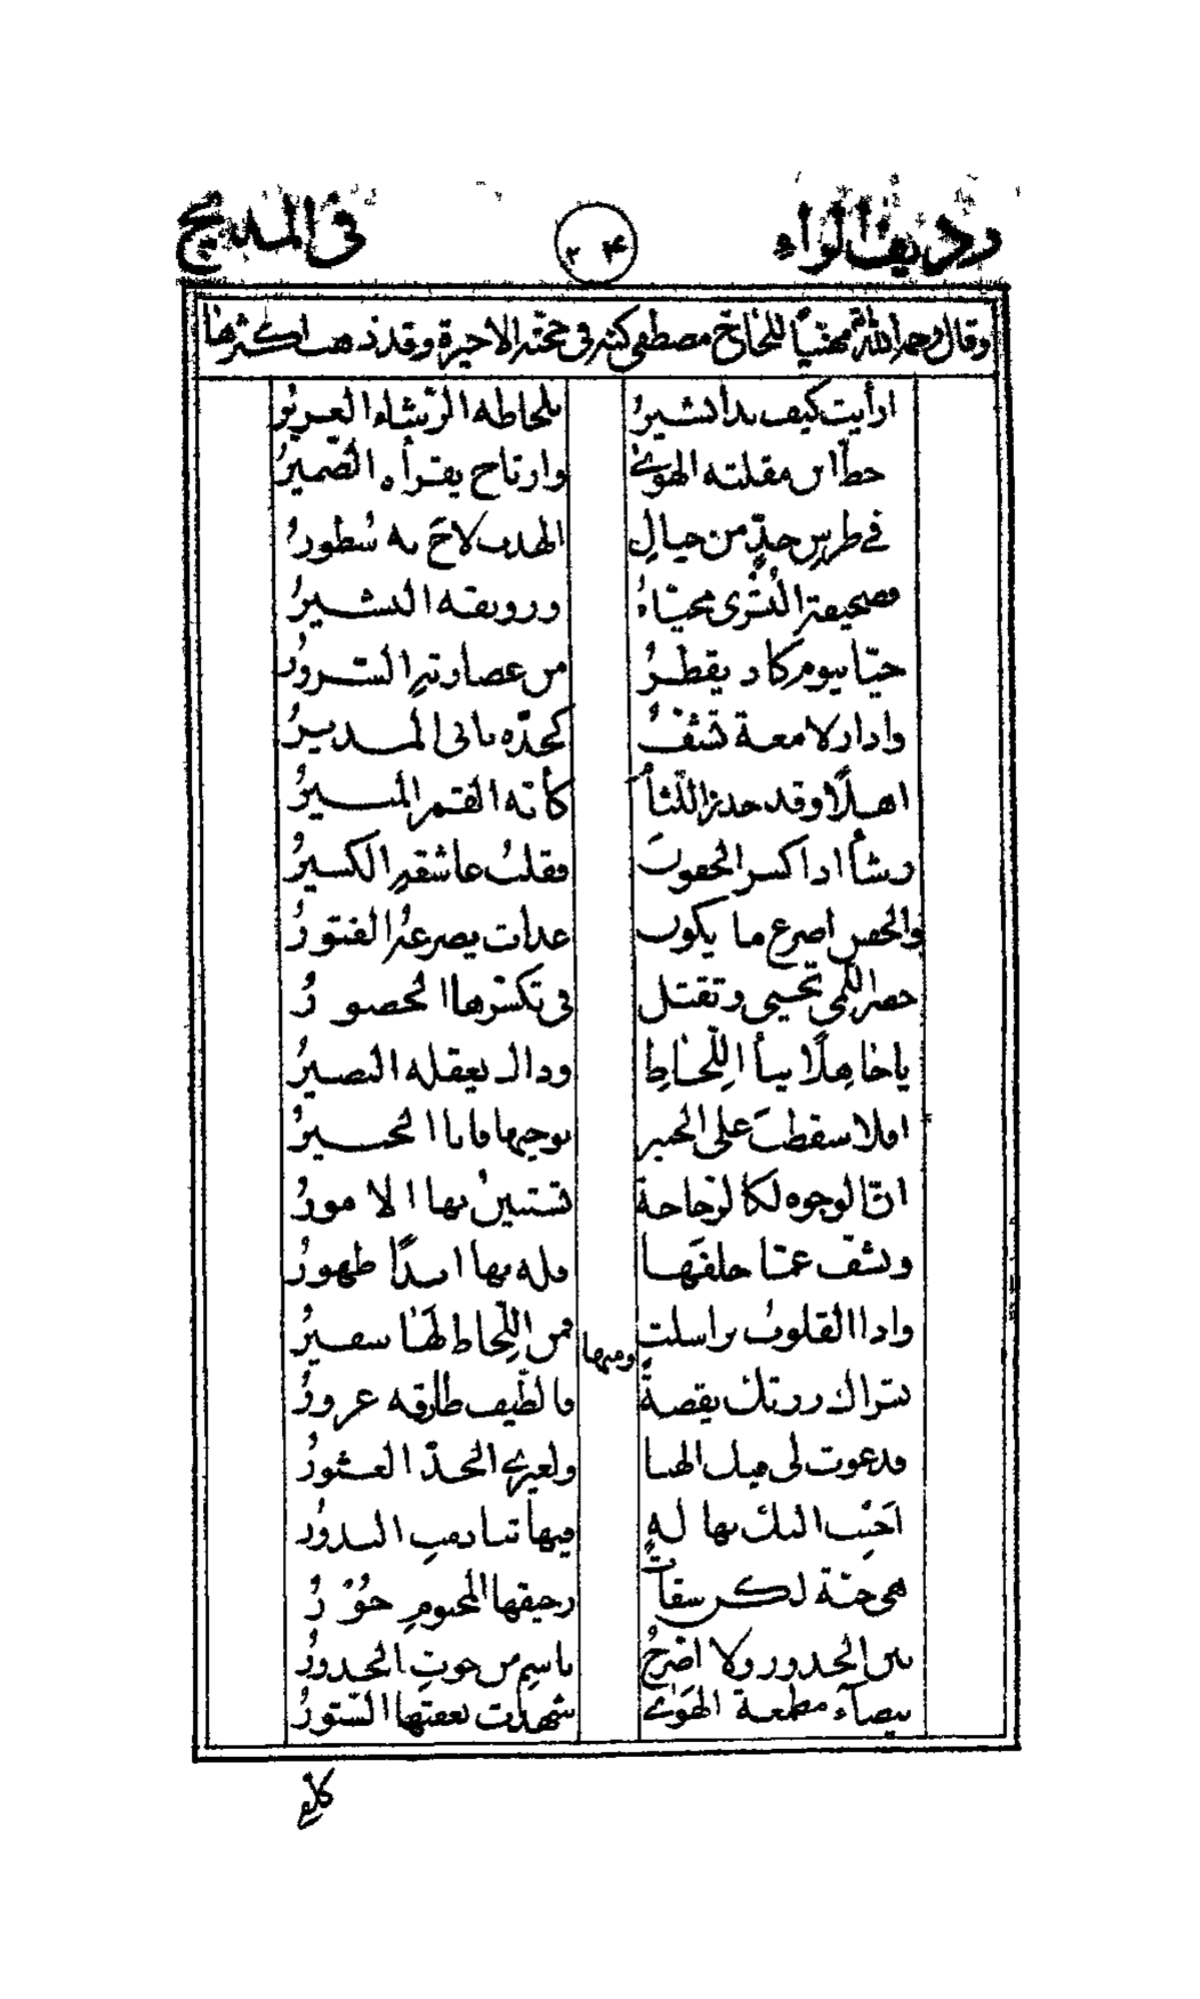 رديف الراء ٢٤ في المديح
وقال رحمه الله مهنئاً للحاج مصطفى كبه في حجته الاخيرة وقد ذهب اكثرها
ارأيت كيف بدا يشيرُ بلحاظه الرّشاء الغريرُ
خطّا بن مقلته الهوىٰ وارتاح يقرأه الضّميرُ
في طرسِ خدٍّ من خيالِ الهدب لاحَ به سُطورُ
وصحيفة البُشْرى محيّاهُ ورونقه البشيرُ
حيّا بيوم كاد يقطرُ من عصارتهِ السّرورُ
وادار لامعة تشفُّ كخدّه بابى المديرُ
اهلًا وقد حدر اللّثامَ كأنه القمر المنيرُ
رشأ اذا كسر الجفونَ فقلبُ عاشقهِ الكسيرُ
والجفن اصرع ما يكون غداة يصرعهُ الفتورُ
خصر اللمى تحيى وتقتل في تكسّرها الخصورُ
يا جاهلًا نبأ اللّحاظِ وذاك يعقله البصيرُ
اولا سقطتَ على الخبير بوحيها فانا الخبيرُ
انّ الوجوه لكا لزجاجة تستبينُ بها الامورُ
ويشف عمّا خلفَها فله بها ابدًا ظهورُ
واذا القلوبُ تراسلت فمن اللّحاظ لهَا سفيرُ
ومنها
بتراك زرتك يقصةً فالطّيف طارقه غرورُ
ودعوت لى ميل الهنا ولغيرى الجدّ العثورُ
اَجْبِب اليك بها له فيها تنادمهِ البدورُ
هى جنة لكن سقاتُ رحيقها المختومِ حُوْرُ
بين الخدور ولا اضرحُ باسمِ من حوتِ الخدورُ
بيضآء مطمعة الهَوىٰ شهدت بعفتها السّتورُ
كلفِ